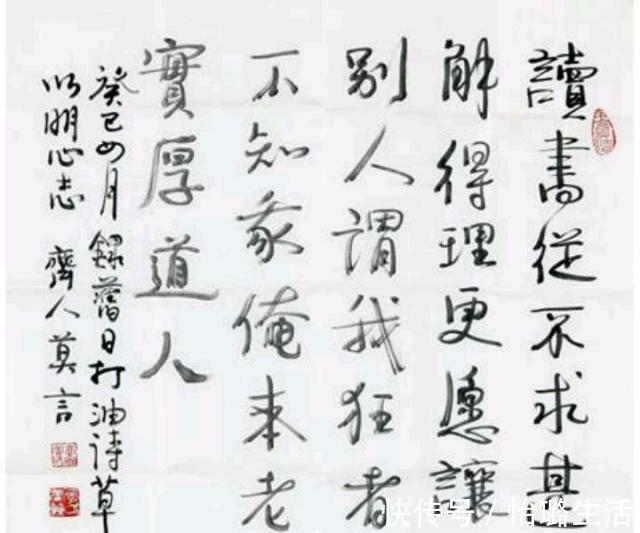 讀書從不求甚
解得理更愿讓
別人謂我狂者
不知我俺本老
實厚道人
癸巳四月錄舊日打油詩草
以明心志 齊人莫言
快传号/怡璐生活